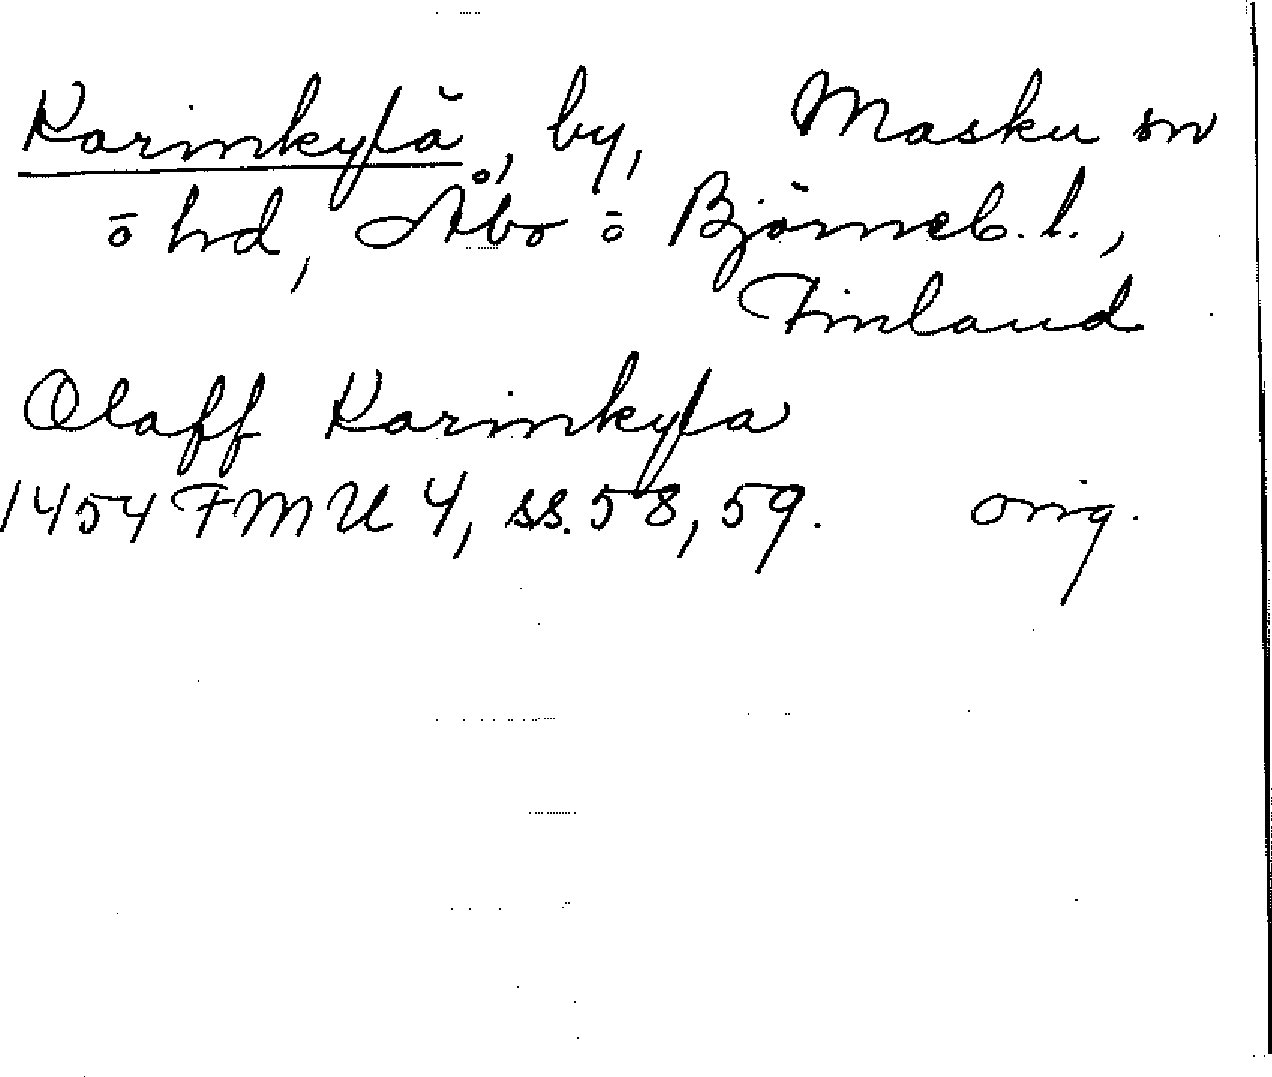 Karinkylä, by, Masku sn
o hd, Åbo o Björneb. l.,
Finland
Olaff Karinkyla
1454 FMU 4, ss. 58, 59. orig.